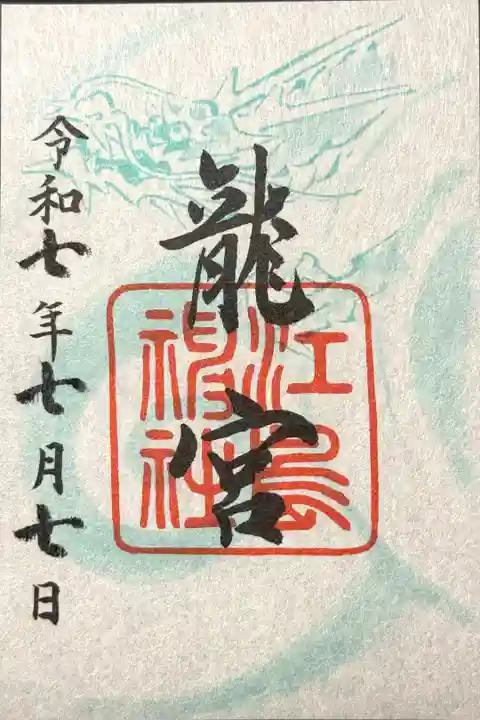 龍宮
江島
神社
令和七年七月七日